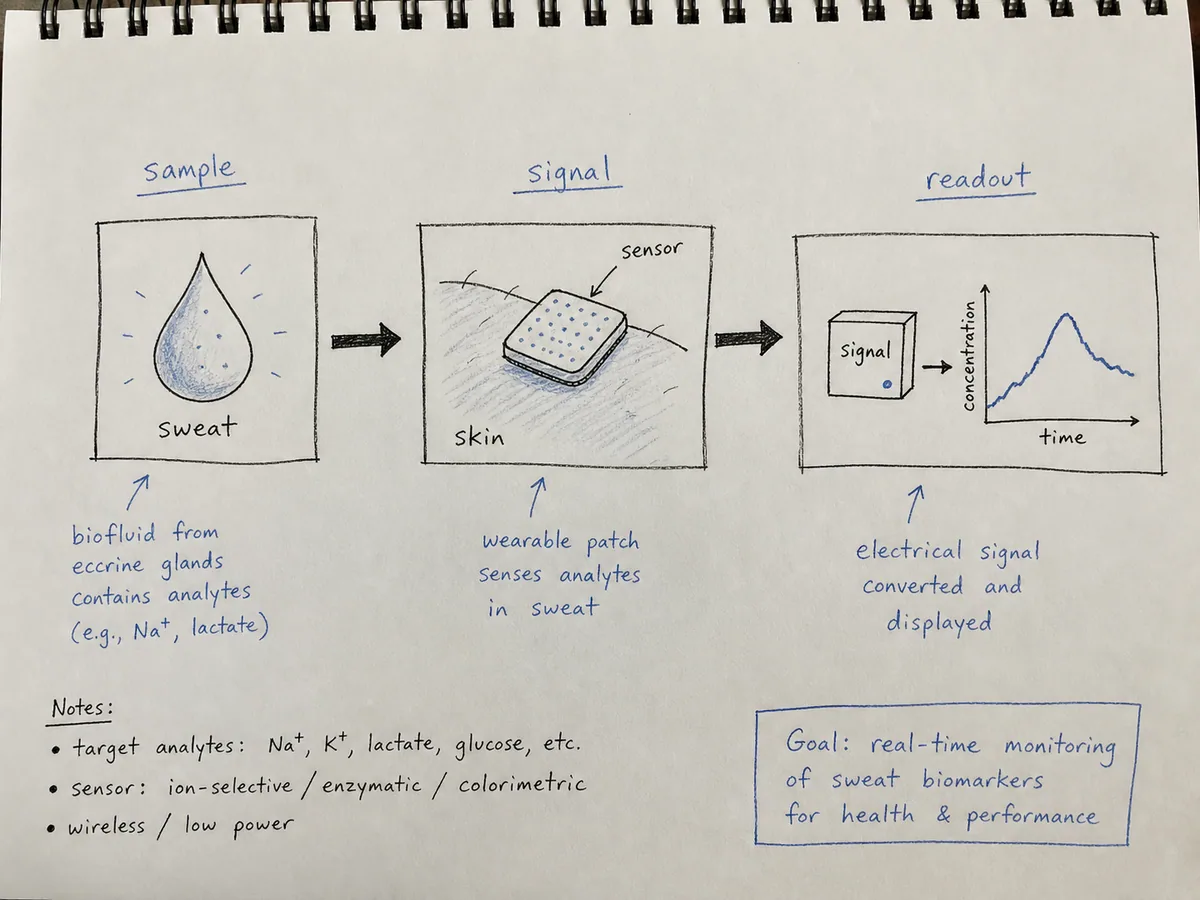 sample
signal
readout
sweat
sensor
skin
signal
concentration
time
biofluid from
eccrine glands
contains analytes
(e.g., Na⁺, lactate)
wearable patch
senses analytes
in sweat
electrical signal
converted and
displayed
Notes:
• target analytes: Na⁺, K⁺, lactate, glucose, etc.
• sensor: ion-selective / enzymatic / colorimetric
• wireless / low power
Goal: real-time monitoring
of sweat biomarkers
for health & performance